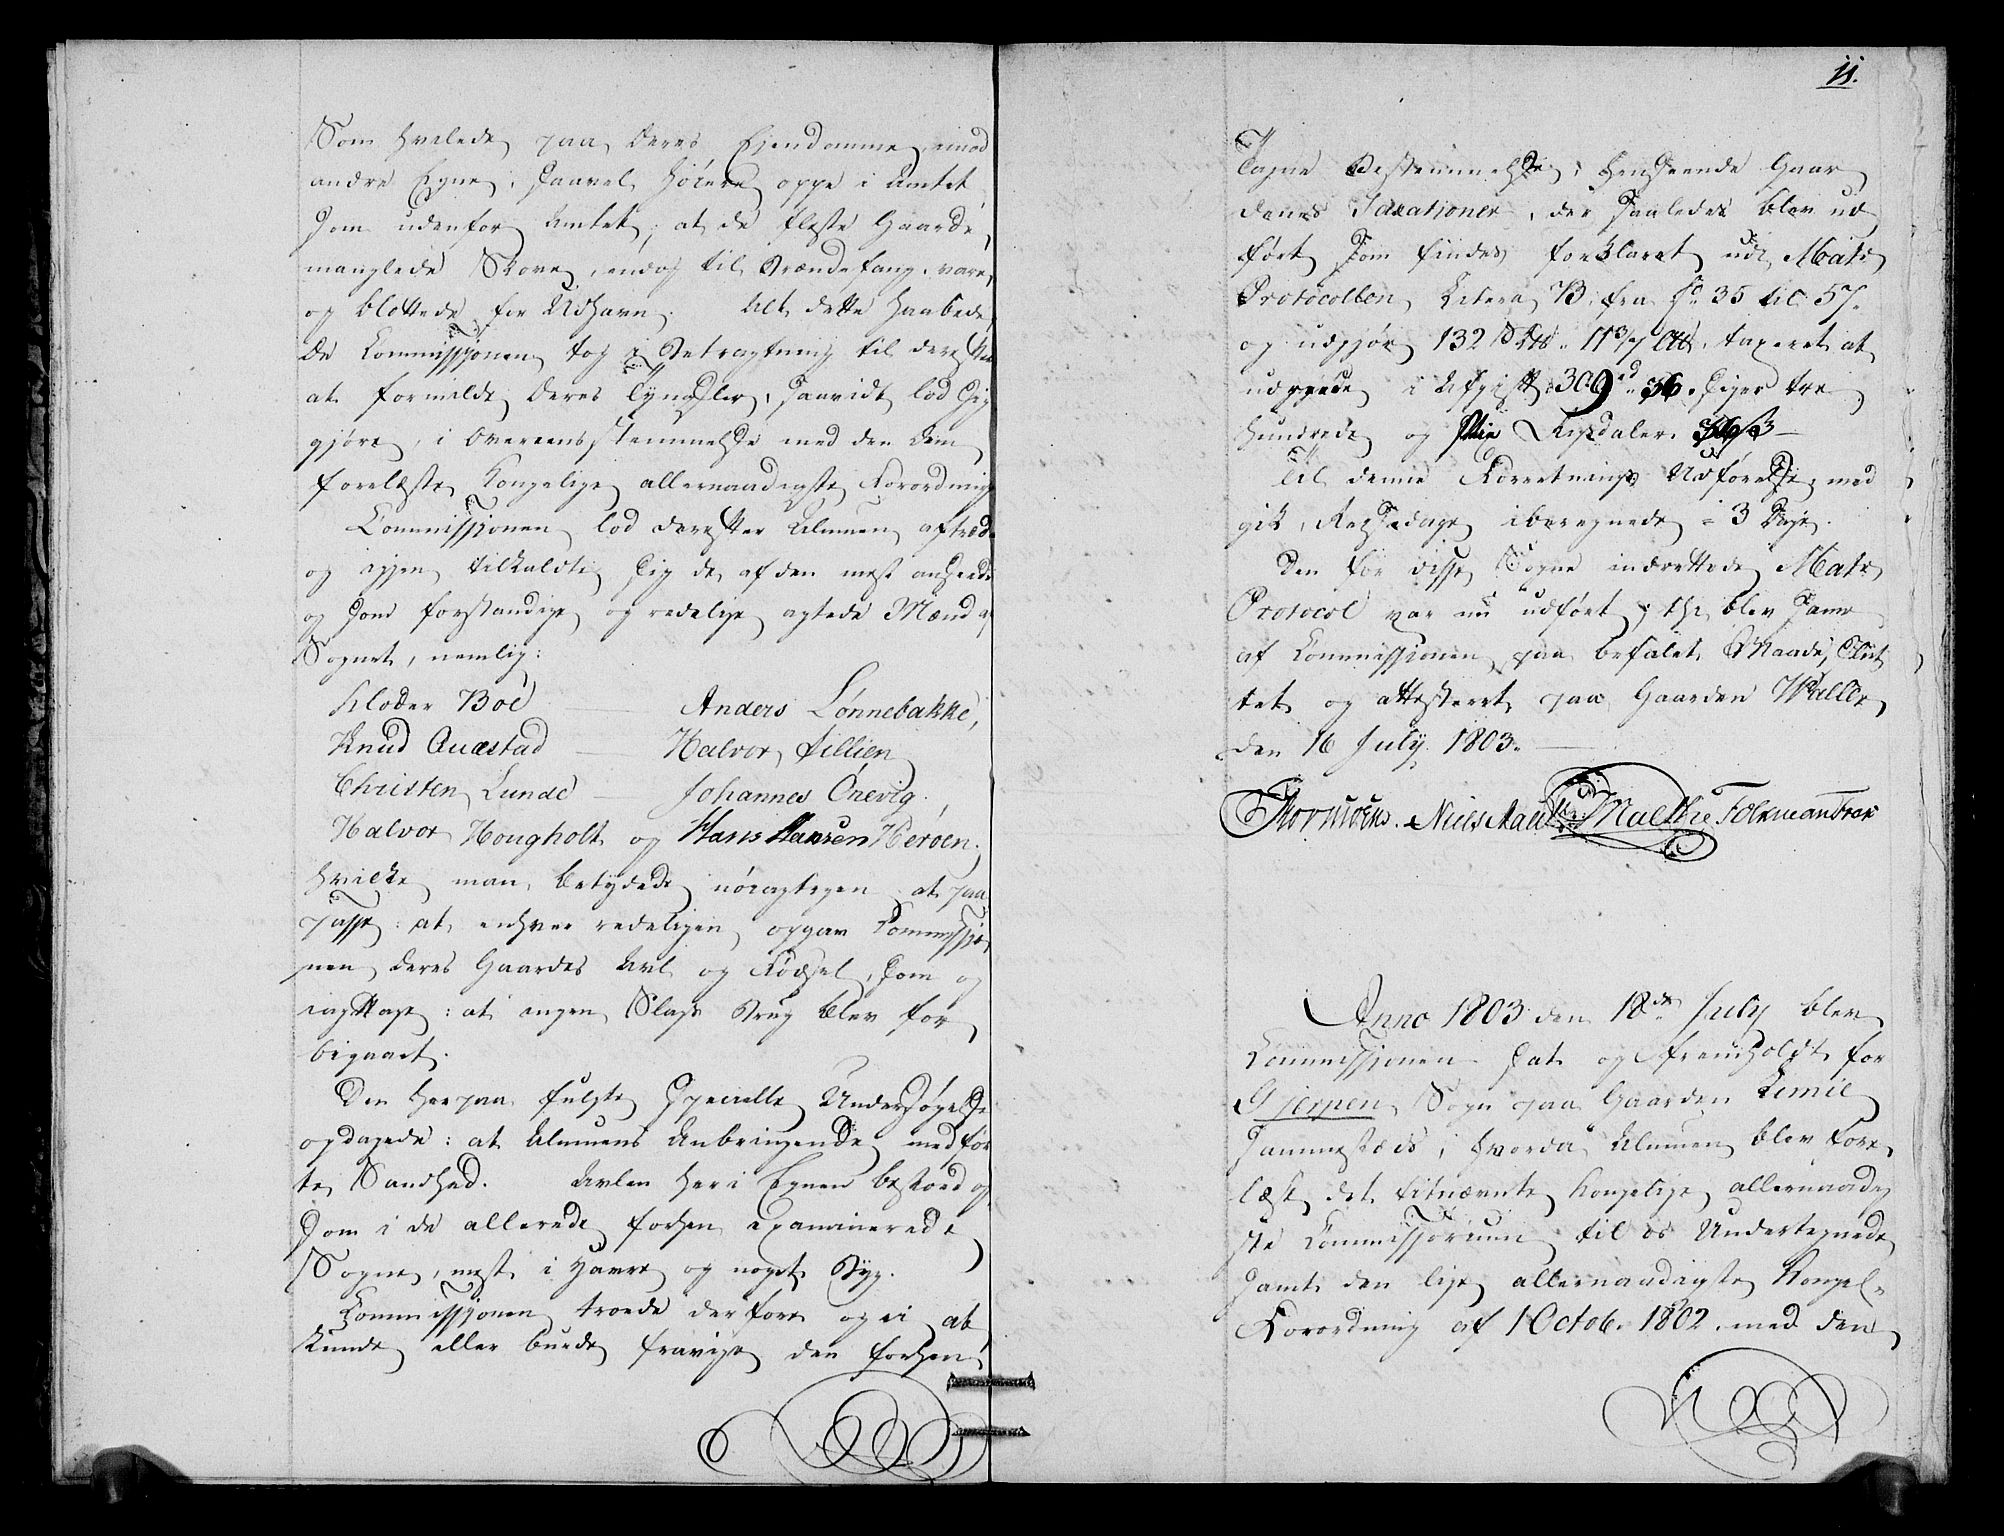 Som hvilede paa deres Ejendomme, imod
andre Egne, saavel høiere oppe i Amtet
som udenfor Amtet; at de fleste Gaarde,
manglede Skove, endog til Brændefang, vare
og blottede for Udhavn. Alt dette haabede,
de Commissjonen tog i Betragtning til derefter
at formilde deres Tyngsler, saavidt lod sig
gjøre, i Overeensstemmelse med den dem
forelæste Kongelige allernaadigste Forordning
Commissjonen lod derefter Almuen aftræde
og igjen tilkaldte sig de af den mest anseede
og som forstandige og redelige agtede Mænd af
Sognet, nemlig:
Kloder Böe — Anders Lönnebakke,
Knud Quæstad — Halvor Tillien
Christen Lunde — Johannes Önevig,
Halvor Hougholt og Hans Hansen Heröen,
hvilke man betydede nöiagtigen at paa
passe: at enhver redeligen opgav Commissjo
nen deres Gaardes Avl og Födsel, som og
iagttage: at ingen Slags Brug blev for
bigaaet.
Den herpaa fulgte specielle Undersøgelse
opdagede: at Almuens Anbringende medför
te Sandhed. Avlen her i Egnen bestoed og
som i de allerede forhen examinerede
Sogne, mest i Havre og noget Byg.
Commissjonen troede derfore og ei at
kunde eller burde fravige den forhen
11.
tagne Bestemmelse i Henseende Gaar
denes Taxationer, der saaledes blev ud
fört som findes forklaret udi Matr
Protocollen Litera B. fra fo 35 til 57.
og udgjör 132 11 3/7 taxeret at
udrede i Afgift 309 rd 36. siger tre
hundrede og Nie Rigsdaler 36 s
Til denne Forretnings Udförelse med
gik, Reisedage iberegnede = 3 Dage.
Den for disse Sogne indrettede Matr
Protocol var nu udfört, thi blev samme
af Commissjonen paa befalet Maade, slut
tet og attesteret paa Gaarden Walle
den 16 July 1803.
Stormoen. Niels Aall Malthe Folkmandrer
Anno 1803 den 18de July blev
Commissjonen sat og fremholdt for
Gjerpen Sogn paa Gaarden Limie
sammestæds, hvorda Almuen blev fore
læst det titnævnte Kongelige allernaadig
ste Commissorium til os Undertegnede
samt den lige allernaadigste Kongel.
Forordning af 1 Octob. 1802. med den